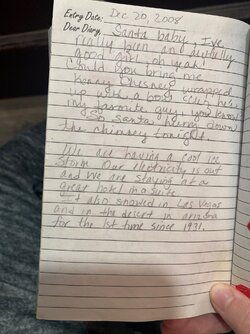 Entry Date: Dec 20, 2008
Dear Diary, Santa baby, I've
really been an awfully
good girl, oh yeah!
Could you bring me
Kenny Chesney wrapped
up with a bow cuz he's
my favorite guy, you know!
So santa hurry down
the chimney tonight.
We are having a cool ice
storm. Our electricity is out
and we are staying at a
great hotel in a suite.
It also snowed in Las Vegas
and in the desert in
for the 1st time since 1971.